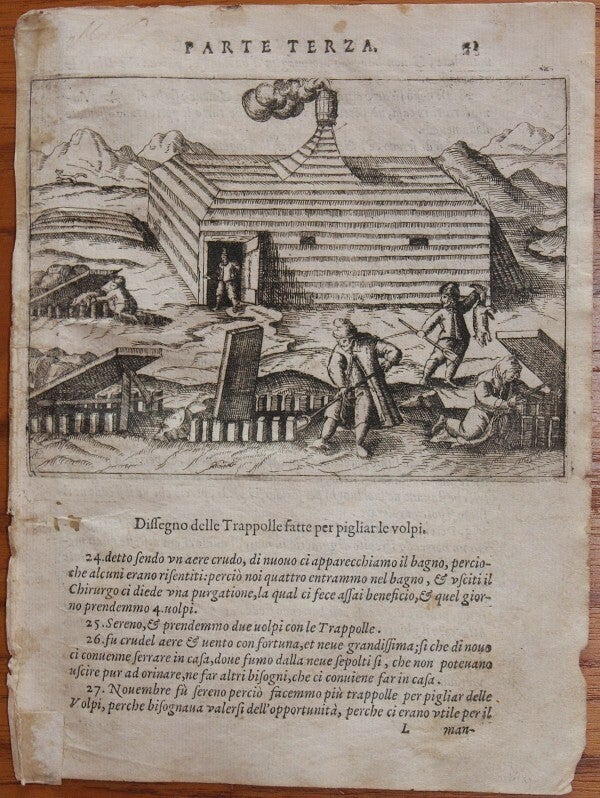 PARTE TERZA.
Disſegno delle Trappolle fatte per pigliar le volpi.
24. detto ſendo vn aere crudo, di nuouo ci apparecchiamo il bagno, percio-
che alcuni erano riſentiti: perciò noi quattro entrammo nel bagno, & vſciti il
Chirurgo ci diede vna purgatione, la qual ci fece aſſai beneficio, & quel gior-
no prendemmo 4. volpi.
25. Sereno, & prendemmo due volpi con le Trappole.
26. fu crudel aere & uento con fortuna, et neue grandiſsima; ſi che di nouo
ci conuenne ſerrare in caſa, doue fumo dalla neue ſepolti ſi, che non poteuano
uſcire pur ad orinare, ne far altri biſogni, che ci conuiene far in caſa.
27. Nouembre fù ſereno perciò facemmo più trappolle per pigliar delle
Volpi, perche biſognaua valerſi dell'opportunità, perche ci erano vtile per il
L man-